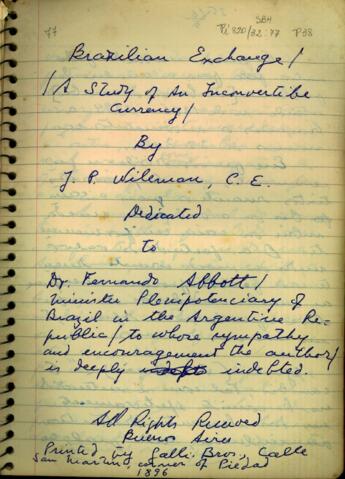 77
SB4
Pi 820/32:77 P38
Brazilian Exchange/
/A Study of An Inconvertible
Currency/
By
J. P. Wileman, C. E.
Dedicated
to
Dr. Fernando Abbott/
Minister Plenipotenciary of
Brazil in the Argentine Re-
public/ to whose sympathy
and encouragement the author/
is deeply indebted.
All Rights Reserved
Buenos Aires
Printed by Galli Bros., Calle
San Martino, corner of Piedad
1896